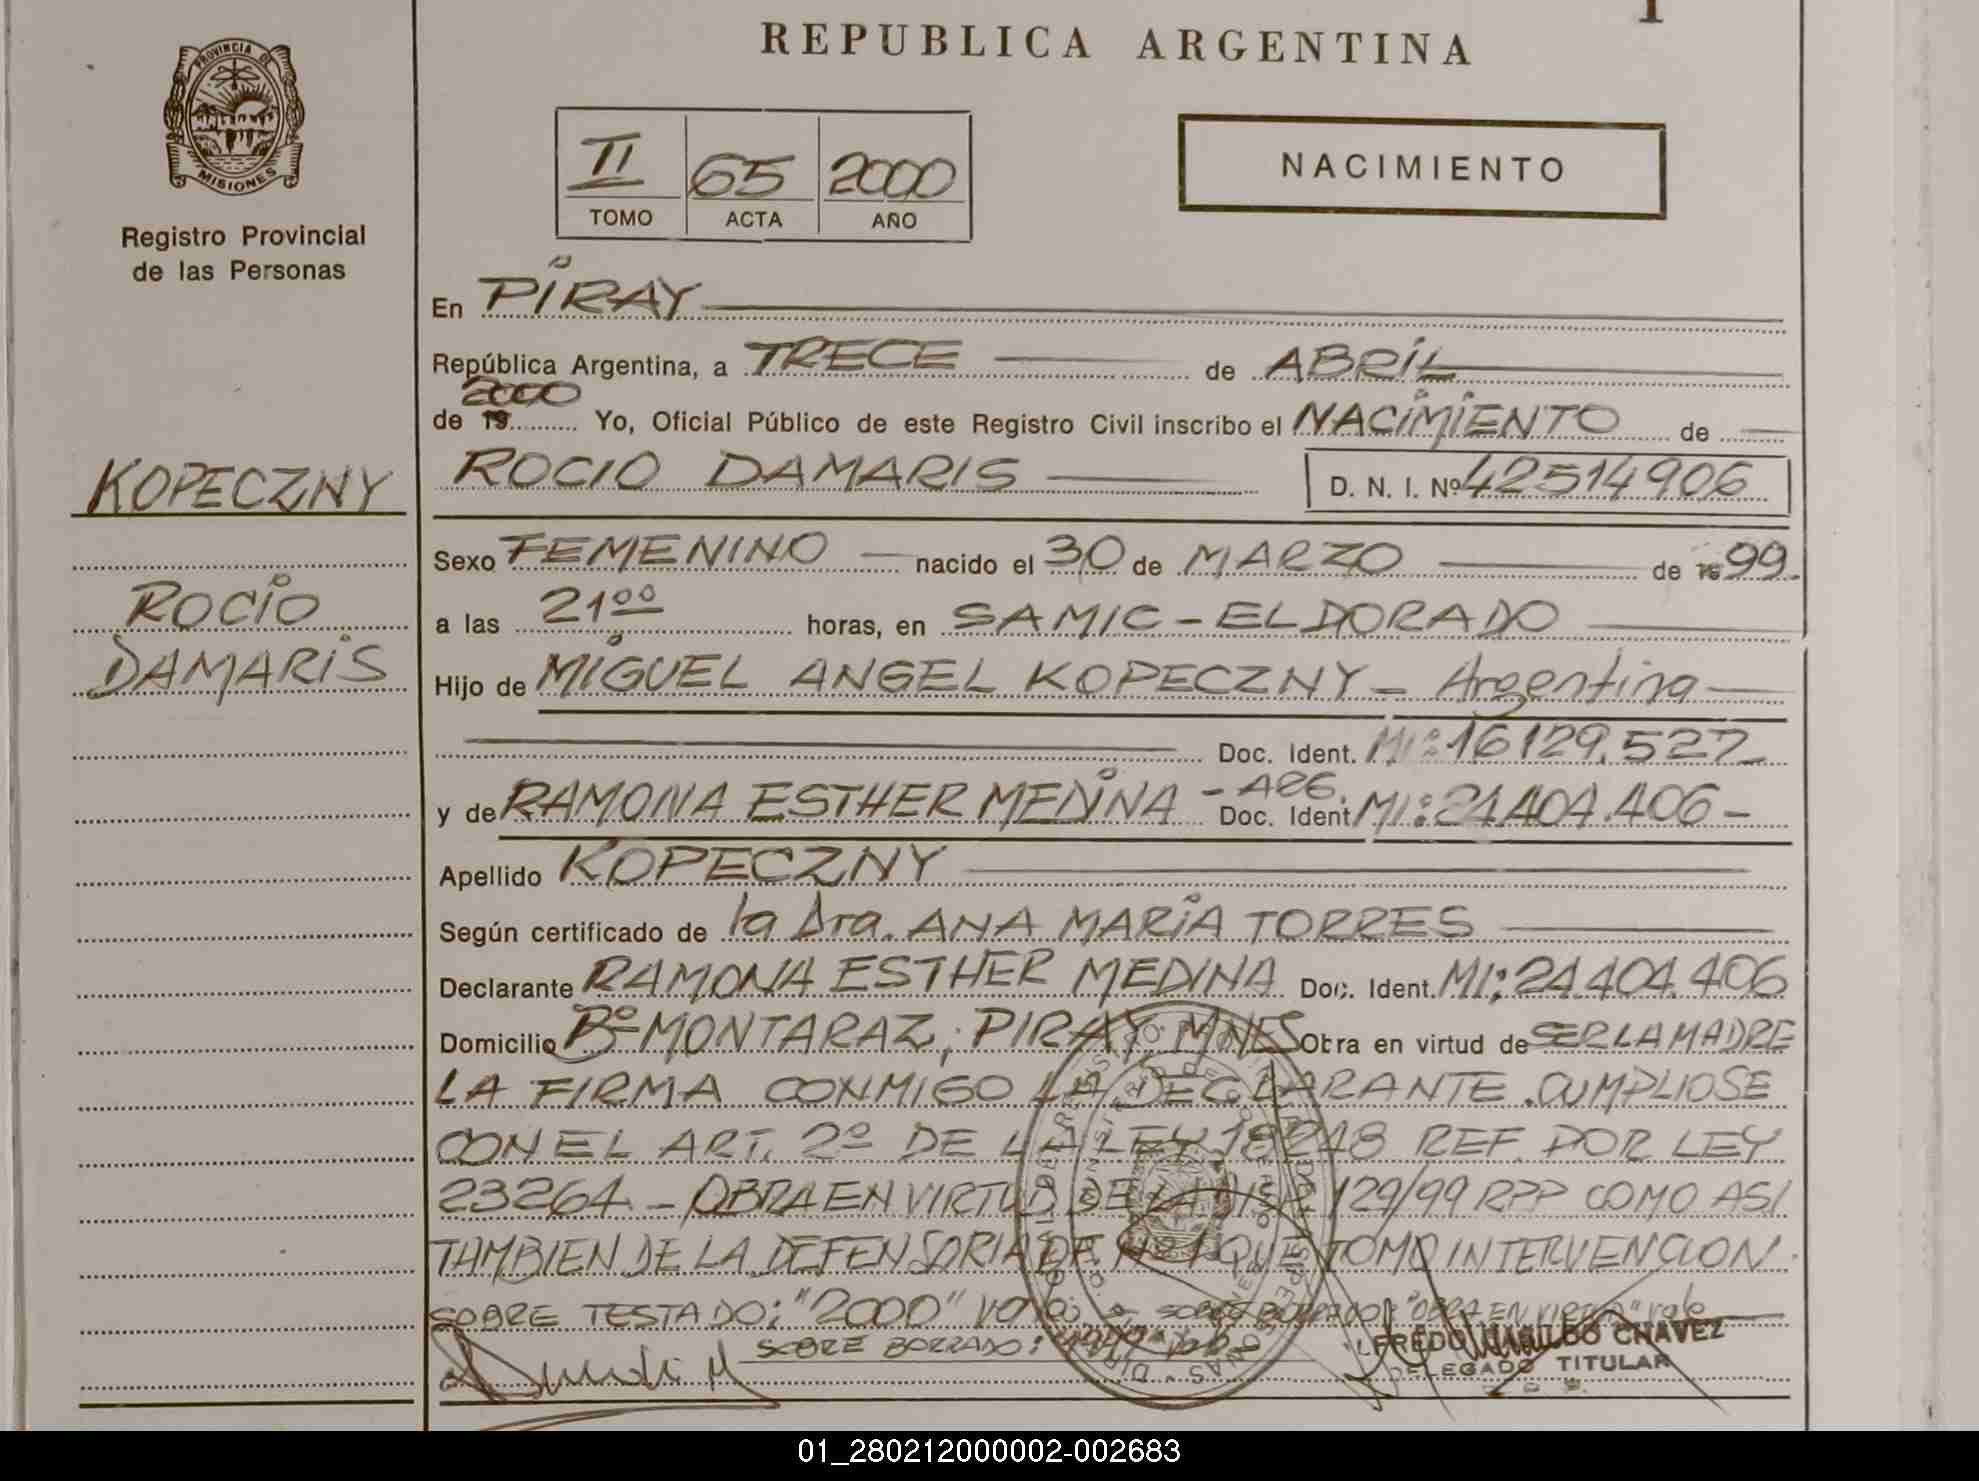 REPUBLICA ARGENTINA
PROVINCIA DE
MISIONES
Registro Provincial
de las Personas
II 65 2000
TOMO ACTA AÑO
NACIMIENTO
En PIRAY
República Argentina, a TRECE de ABRIL
2000
de 19 Yo, Oficial Público de este Registro Civil inscribo el NACIMIENTO de
KOPECZNY
ROCIO DAMARIS D. N. I. Nº 42514906
Sexo FEMENINO nacido el 30 de MARZO de 1999
ROCIO
DAMARIS
a las 21⁰⁰ horas, en SAMIC - ELDORADO
Hijo de MIGUEL ANGEL KOPECZNY - Argentina
Doc. Ident. MI: 16129.527
y de RAMONA ESTHER MEDINA - ARG. Doc. Ident. MI: 24.404.406 -
Apellido KOPECZNY
Según certificado de la Dra. ANA MARIA TORRES
Declarante RAMONA ESTHER MEDINA Doc. Ident. MI: 24.404.406
Domicilio Bº MONTARAZ, PIRAY, MNES Obra en virtud de SER LA MADRE
LA FIRMA CONMIGO LA DECLARANTE. CUMPLIOSE
CON EL ART. 2º DE LA LEY 18248 REF. POR LEY
23264 - OBRA EN VIRTUD DE LA DISP. 129/99 RPP COMO ASI
TAMBIEN DE LA DEFENSORIA DE QUE TOMO INTERVENCION.
SOBRE TESTADO: "2000" vale - SOBRE BORRADO: "OBRA EN VIRTUD" vale
SOBRE BORRADO:
CHAVEZ
DELEGADO TITULAR
01_280212000002-002683